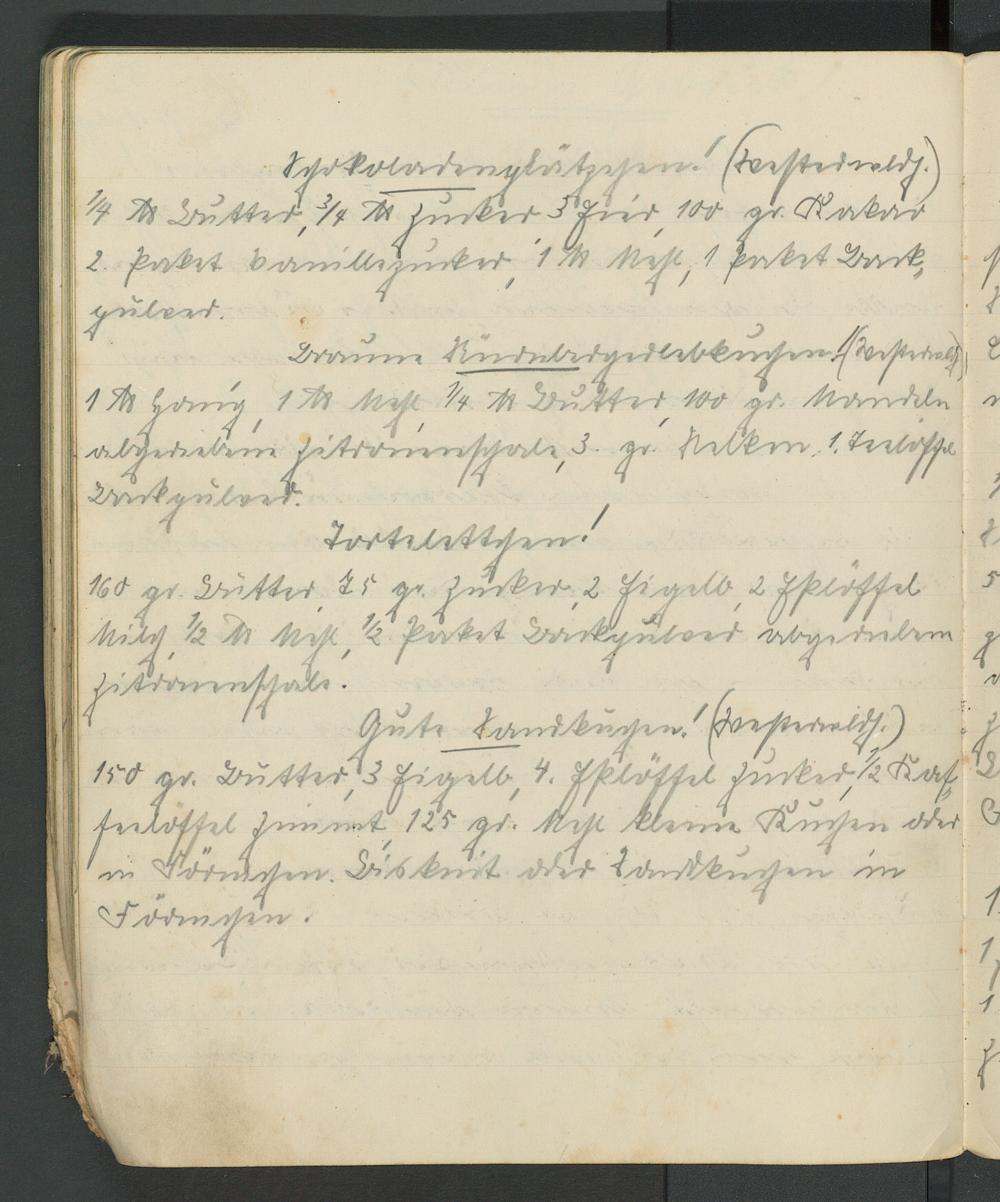 Schokoladenplätzchen! (Westerwaldh.)
1/4 ℔ Butter, 3/4 ℔ Zucker 5 Eier, 100 gr. Kakao
2. Paket Vanillezucker, 1 ℔ Mehl, 1 Paket Back-
pulver.
Braune Nürnbergerlebkuchen! (Westerwaldh)
1 ℔ Honig, 1 ℔ Mehl 1/4 ℔ Butter, 100 gr. Mandeln
abgeriebene Zitronenschale, 3. gr. Nelken, 1. Teelöffel
Backpulver.
Tortelettchen!
160 gr. Butter, 75 gr. Zucker, 2 Eigelb, 2 Eßlöffel
Milch, 1/2 ℔ Mehl, 1/2 Paket Backpulver abgerieben
Zitronenschale.
Gute Sandkuchen! (Westerwaldh.)
150 gr. Butter, 3 Eigelb, 4. Eßlöffel Zucker, 1/2 Kaf-
feelöffel Zimmt, 125 gr. Mehl kleine Kuchen oder
in Förmchen. Biskuit oder Sandkuchen in
Förmchen.